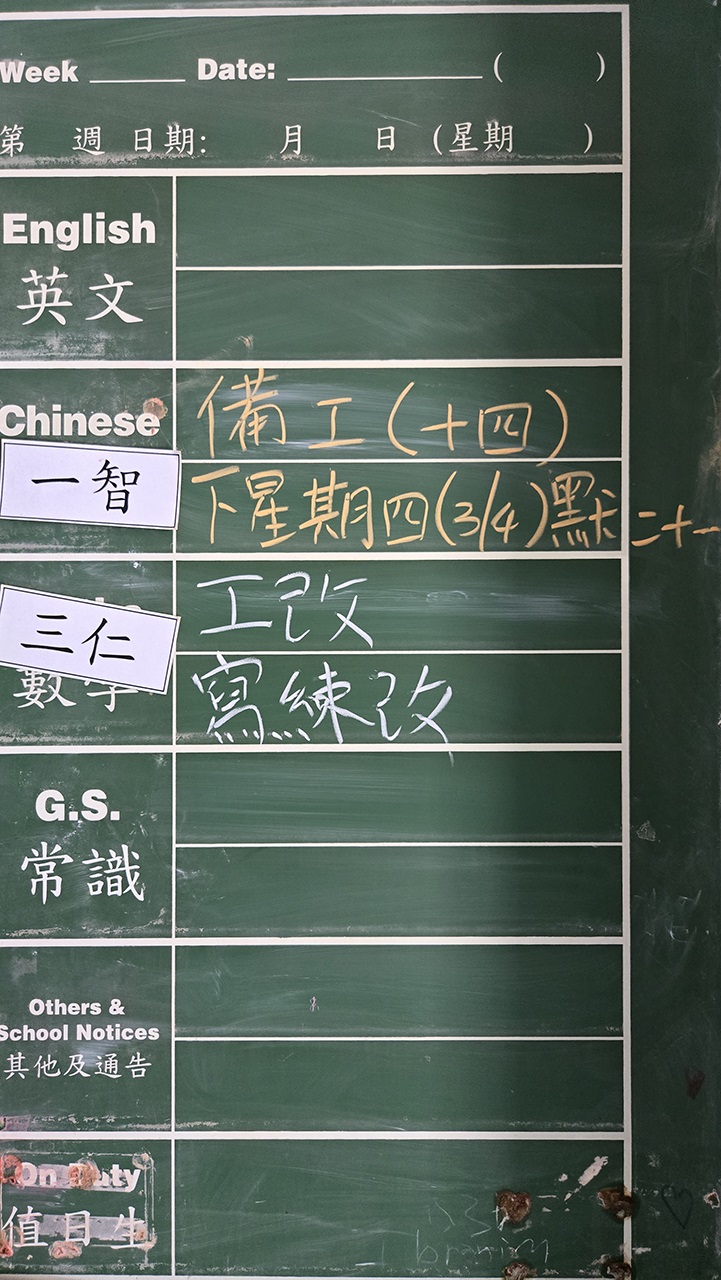 Week ______ Date: ____________ ( )
第 週 日期: 月 日 (星期 )
English
英文
Chinese
備工(十四)
一智
下星期四(3/4)默二十一
三仁
工改
數學
寫練改
G.S.
常識
Others &
School Notices
其他及通告
On Duty
值日生